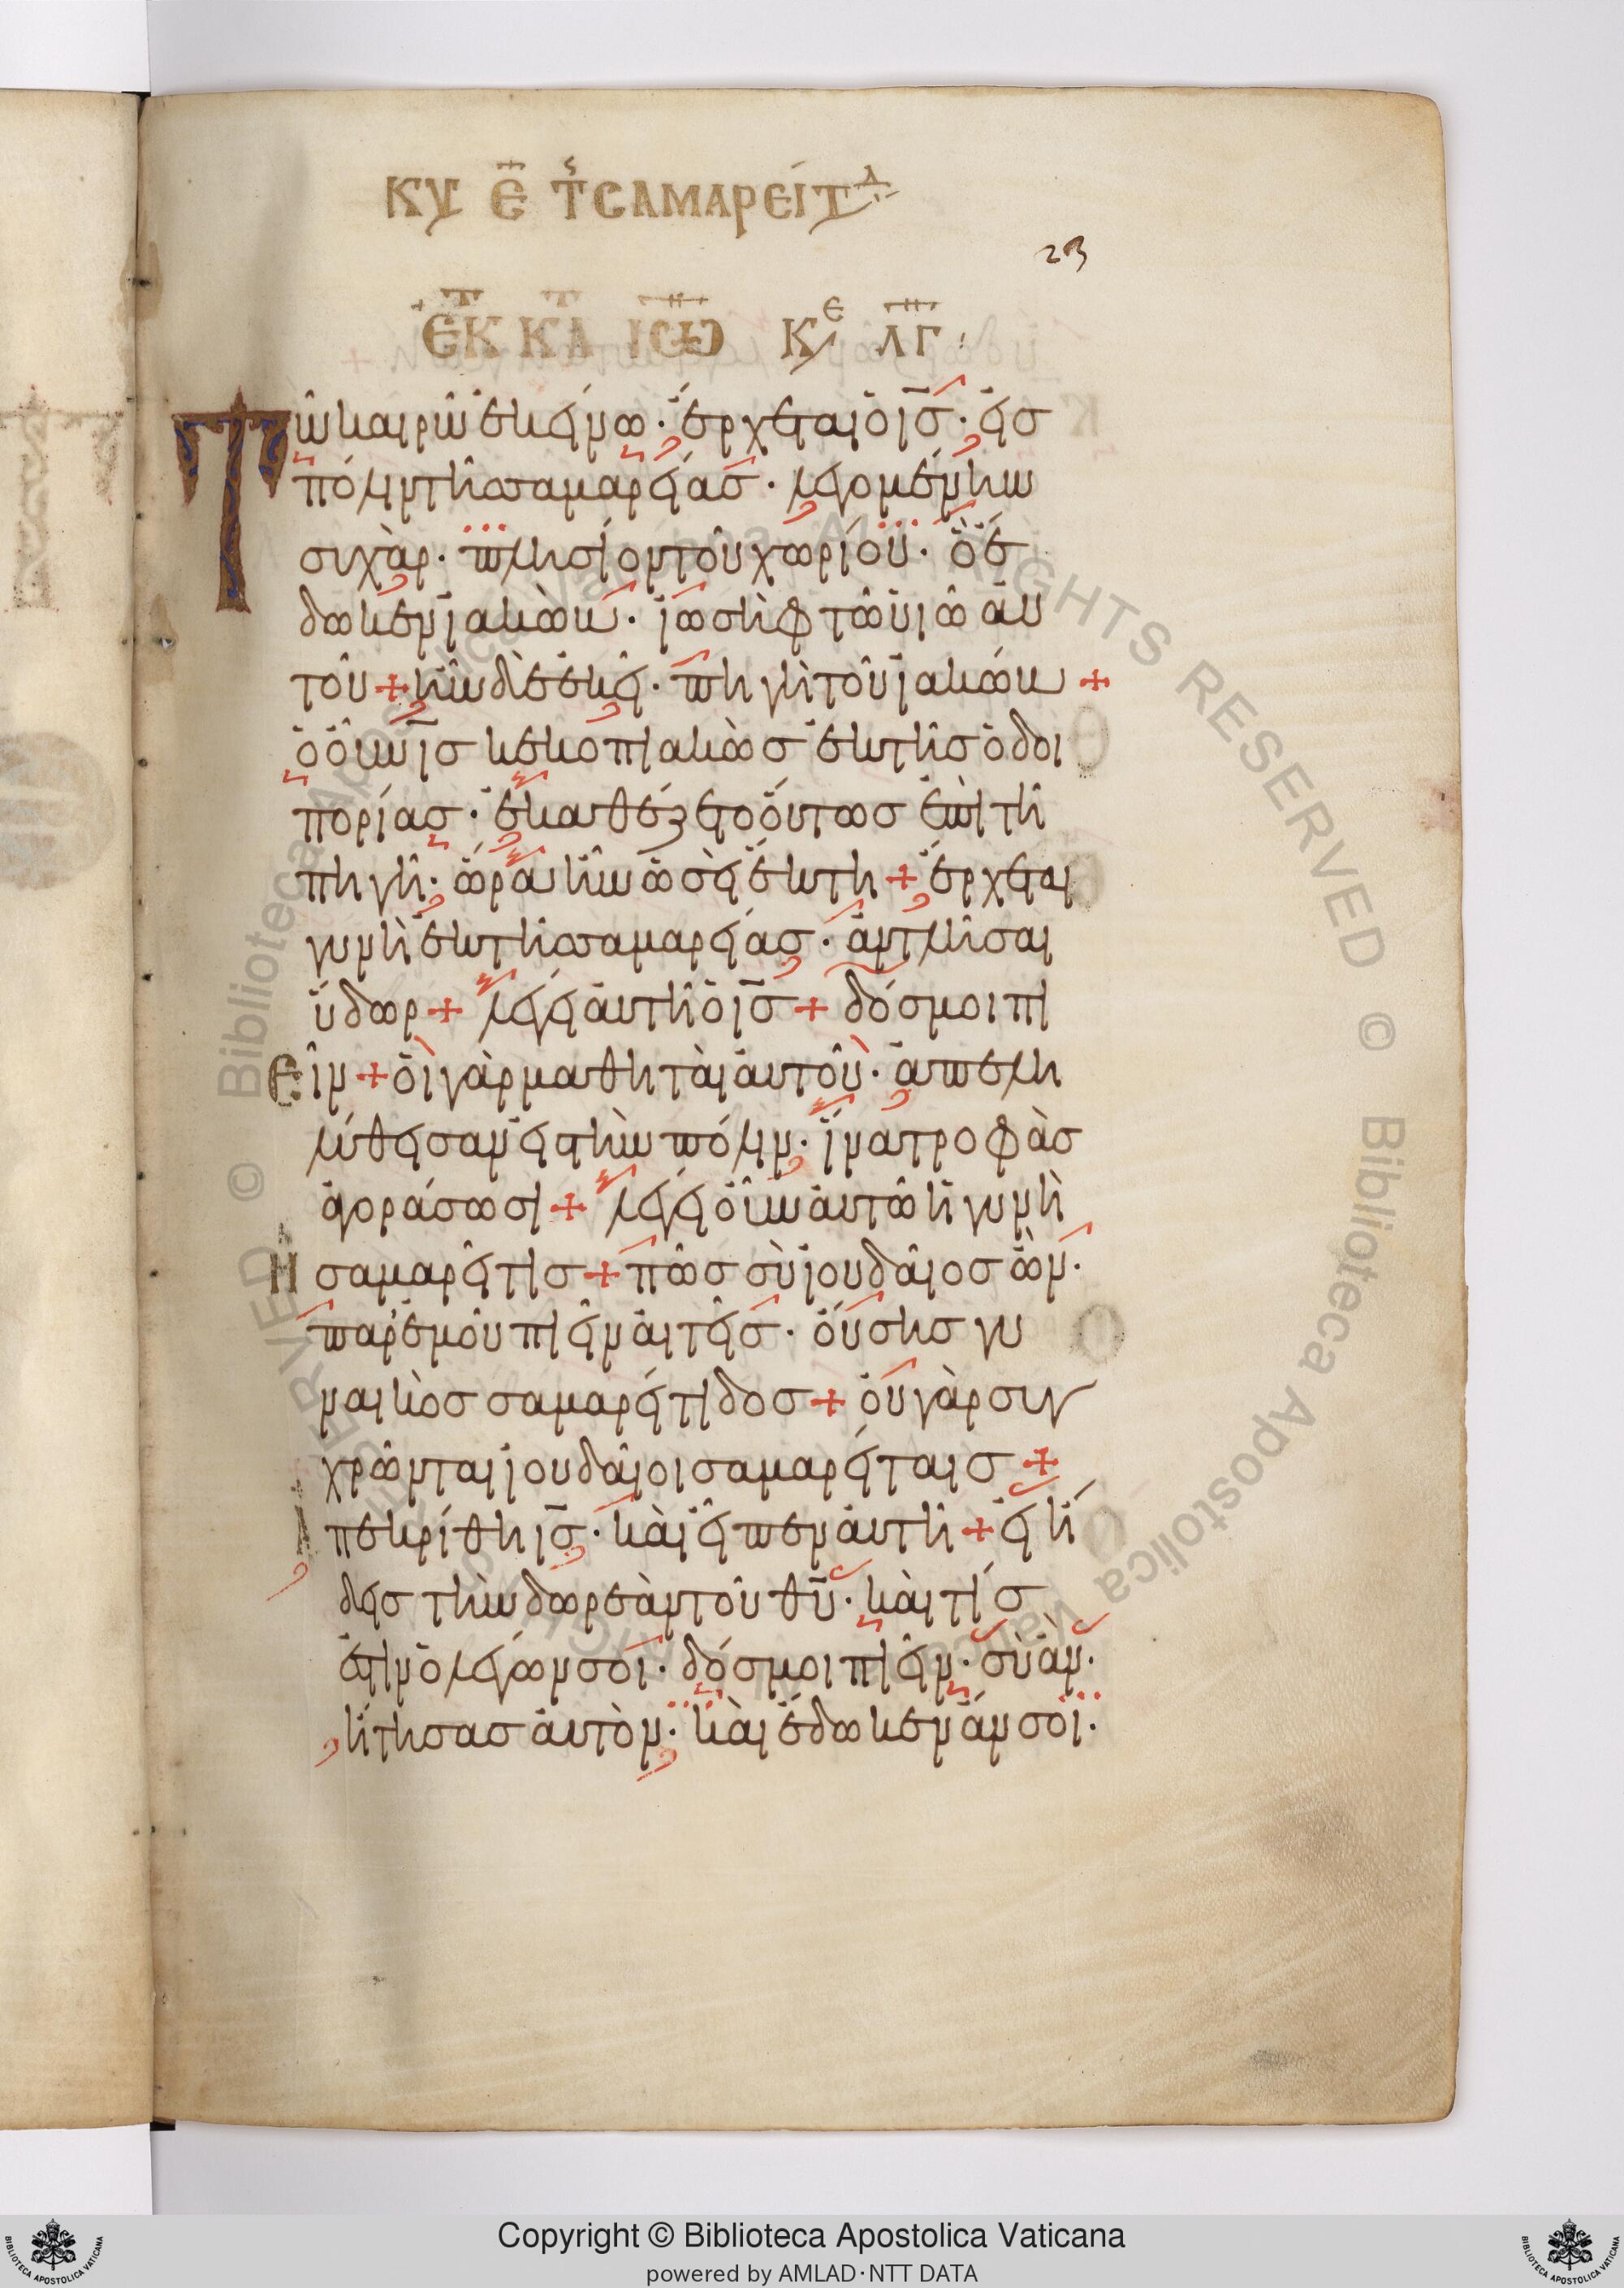 ΚΥ Ε Τ͂ ΣΑΜΑΡΕΙΤΔ
23
ΕΚ Κ Τ ΙΩ Κε ΛΓ
Τῶ καιρῶ ἐκείνω· ἔρχεται ὁ ις̅· εἰσ
πόλιν τῆσ σαμαρείασ· λεγομένην
σιχὰρ· πλησίον τοῦ χωρίου· ὃ ἔ
δωκεν ϊακὼβ· ϊωσὴφ τῶ ϋιῶ αυ
τοῦ + ἦν δὲ ἐκεῖ· πηγὴ τοῦ ϊακώβ +
ὁ οὖν ις̅ κεκοπιακὼσ ἐκ τῆσ ὁδοι
πορίασ· ἐκαθέζετο οὕτωσ ἐπὶ τῆ
πηγῆ· ὥρα ἦν ὡσεὶ ἕκτη + ἔρχεται
γυνὴ ἐκ τῆσ σαμαρείασ· ἀντλῆσαι
ὕδωρ + λέγει αὐτῆ ὁ ις̅ + δόσ μοι πι
εῖν + ὁι γὰρ μαθηταὶ αὐτοῦ· ἀπελη
λύθεισαν εἰσ τὴν πόλιν· ἵνα τροφὰσ
ἀγοράσωσι + λέγει οὖν αὐτῶ ἡ γυνὴ
Η σαμαρεῖτισ + πῶσ σὺ ϊουδαῖοσ ὢν·
παρ' ἐμοῦ πιεῖν αἰτεῖσ· οὔσησ γυ
ναικὸσ σαμαρείτιδοσ + οὐ γὰρ συγ
χρῶνται ϊουδαῖοι σαμαρείταισ +
Απεκρίθη ις̅· καὶ εἶπεν αὐτῆ + εἰ ἤ
δεισ τὴν δωρεὰν τοῦ θυ̅· καὶ τίσ
ἐστιν ὁ λέγων σοί· δόσ μοι πιεῖν· σὺ ἂν·
ἤτησασ αὐτὸν· καὶ ἔδωκεν ἄν σοί·
Copyright © Biblioteca Apostolica Vaticana
powered by AMLAD·NTT DATA